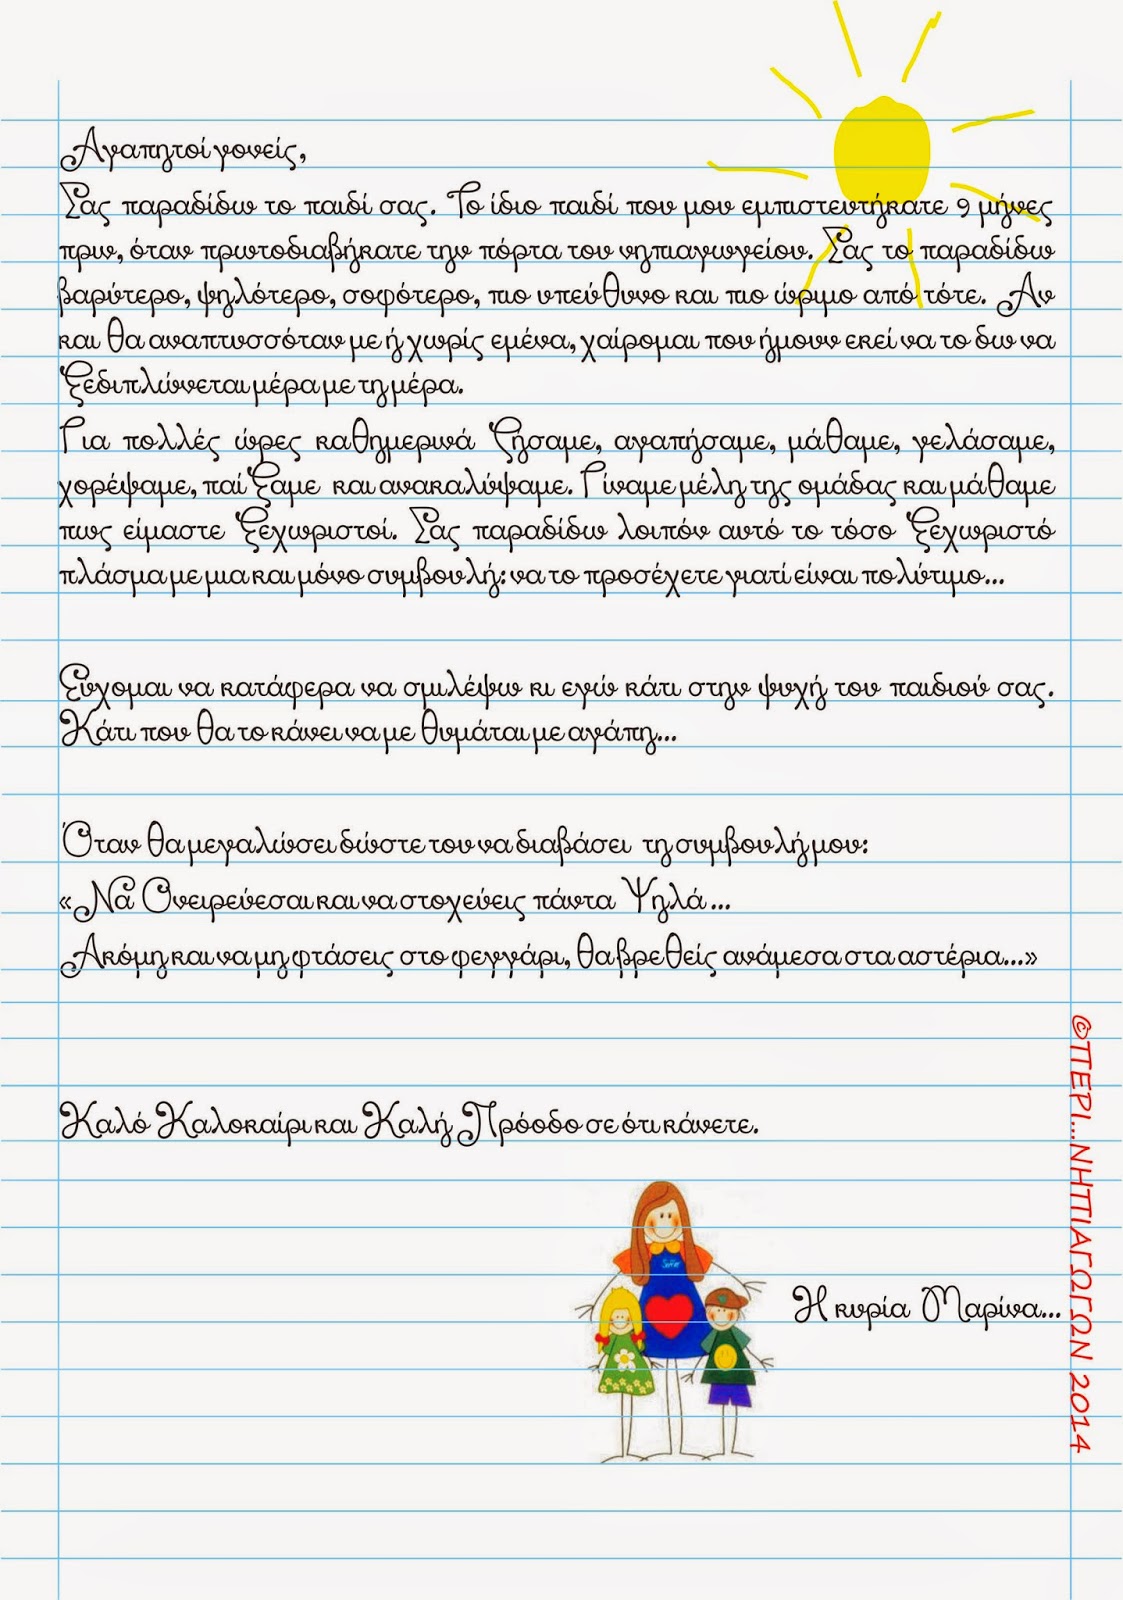 Αγαπητοί γονείς,
Σας παραδίδω το παιδί σας. Το ίδιο παιδί που μου εμπιστευτήκατε 9 μήνες
πριν, όταν πρωτοδιαβήκατε την πόρτα του νηπιαγωγείου. Σας το παραδίδω
βαρύτερο, ψηλότερο, σοφότερο, πιο υπεύθυνο και πιο ώριμο από τότε. Αν
και θα αναπτυσσόταν με ή χωρίς εμένα, χαίρομαι που ήμουν εκεί να το δω να
ξεδιπλώνεται μέρα με τη μέρα.
Για πολλές ώρες καθημερινά ζήσαμε, αγαπήσαμε, μάθαμε, γελάσαμε,
χορέψαμε, παίξαμε και ανακαλύψαμε. Γίναμε μέλη της ομάδας και μάθαμε
πως είμαστε ξεχωριστοί. Σας παραδίδω λοιπόν αυτό το τόσο ξεχωριστό
πλάσμα με μια και μόνο συμβουλή: να το προσέχετε γιατί είναι πολύτιμο...
Εύχομαι να κατάφερα να σμιλέψω κι εγώ κάτι στην ψυχή του παιδιού σας.
Κάτι που θα το κάνει να με θυμάται με αγάπη...
Όταν θα μεγαλώσει δώστε του να διαβάσει τη συμβουλή μου:
«Να Ονειρεύεσαι και να στοχεύεις πάντα Ψηλά...
Ακόμη και να μη φτάσεις στο φεγγάρι, θα βρεθείς ανάμεσα στα αστέρια...»
Καλό Καλοκαίρι και Καλή Πρόοδο σε ότι κάνετε.
Η κυρία Μαρίνα...
©ΠΕΡΙ...ΝΗΠΙΑΓΩΓΩΝ 2014